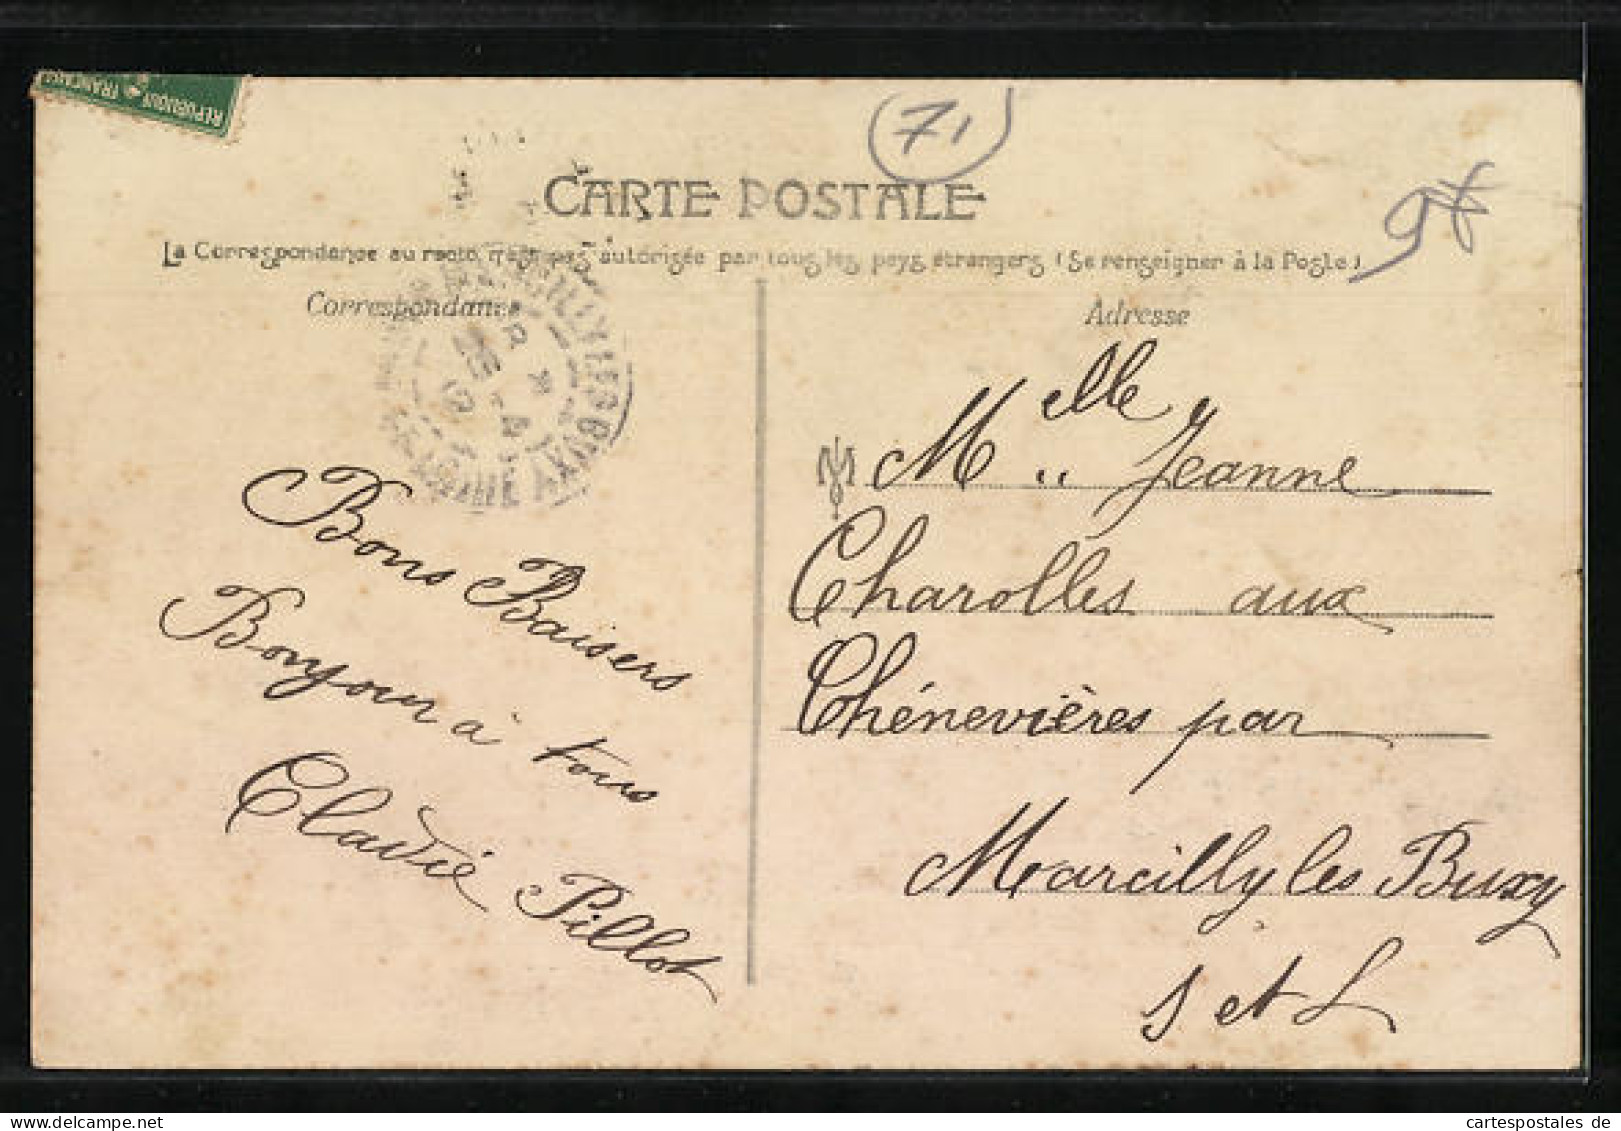 RÉPUBLIQUE FRANÇAISE
71
CARTE POSTALE
La Correspondance au recto n'est pas autorisée par tous les pays étrangers (Se renseigner à la Poste)
Correspondance
Adresse
MARCILLY LES BUXY
Bons Baisers
Bonjour à tous
Claudié Pillot
Melle Jeanne
Charolles aux
Chénevières par
Marcilly les Buxy
S et L
cartespostales de